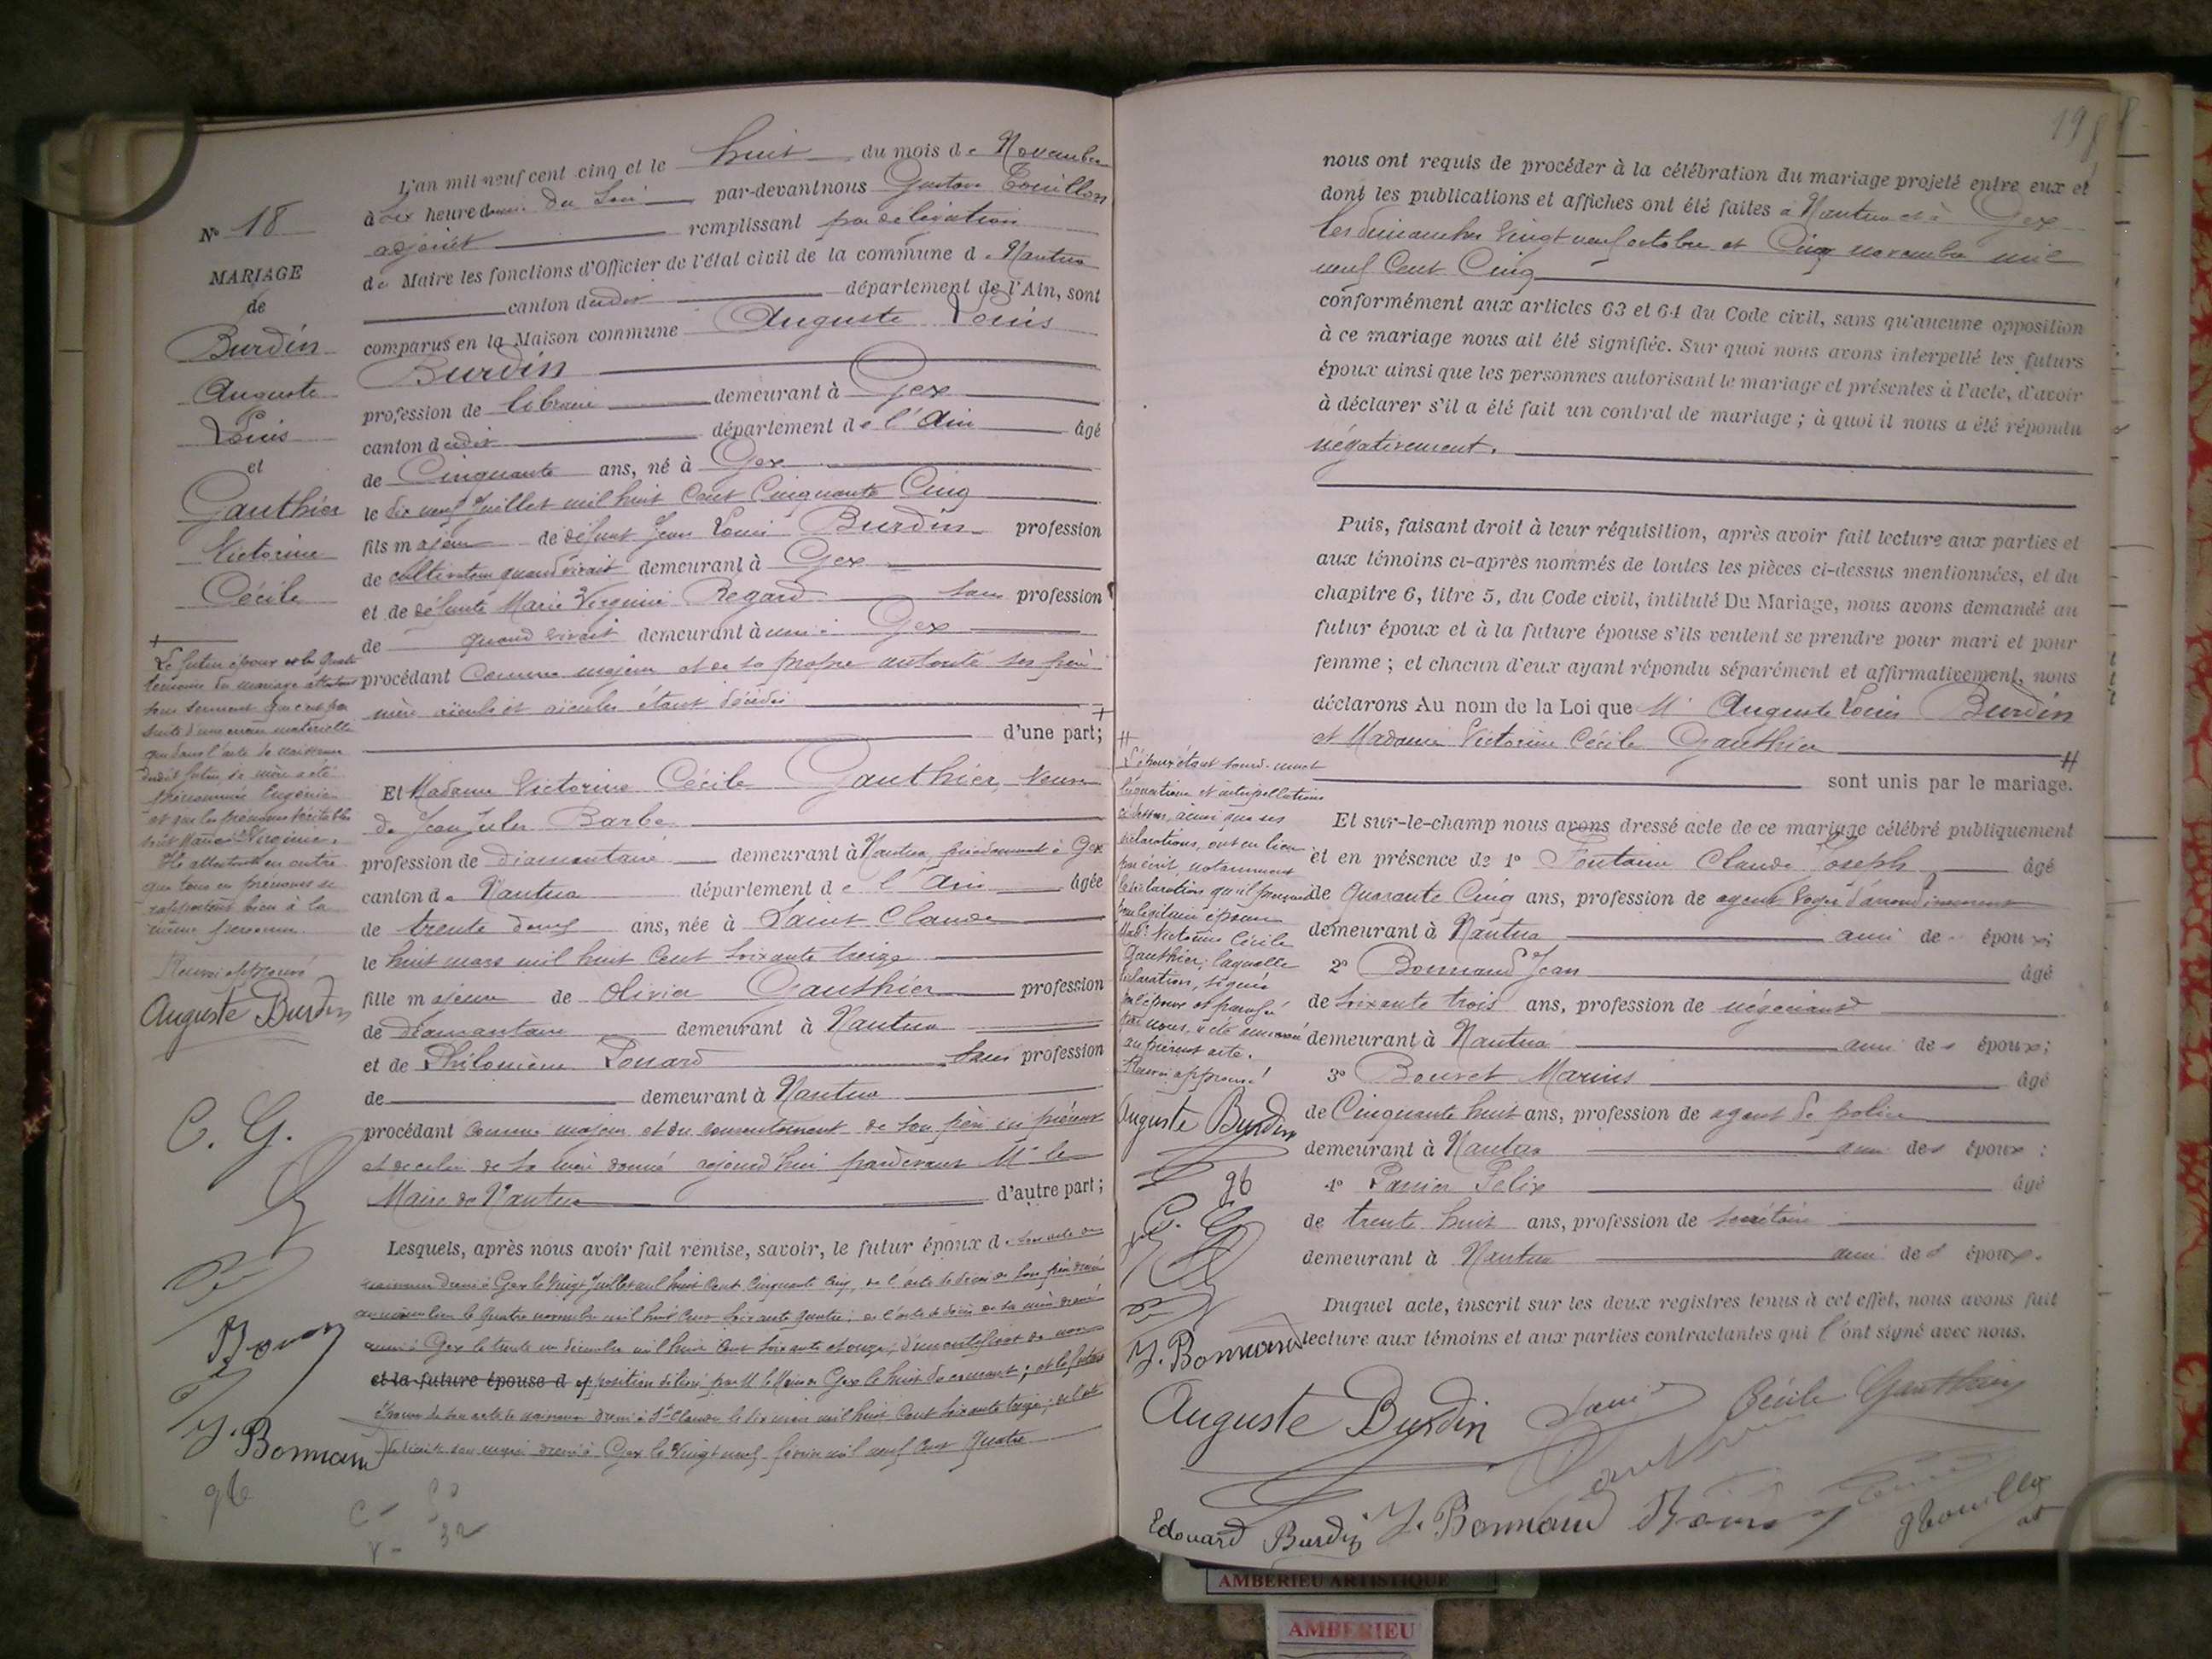 L'an mil neuf cent cinq et le huit du mois de Novembre
à six heures du Soir par-devant nous Gustave Touillon
adjoint remplissant par délégation
de Maire les fonctions d'Officier de l'état civil de la commune de Nantua
canton dudit département de l'Ain, sont
comparus en la Maison commune Auguste Louis
Burdin
profession de libraire demeurant à Gex
canton dudit département de l'Ain âgé
de Cinquante ans, né à Gex
le dix neuf Juillet mil huit Cent Cinquante Cinq
fils majeur de défunt Jean Louis Burdin profession
de cultivateur quand vivait demeurant à Gex
et de défunte Marie Virginie Regard sans profession
de quand vivait demeurant à Gex
procédant comme majeur et de sa propre autorité ses père
mère aïeuls et aïeules étant décédés
d'une part;
Et Madame Victorine Cécile Gauthier, Veuve
de Jean Jules Barbe
profession de diamantaire demeurant à Nantua, précédemment à Gex
canton de Nantua département de l'Ain âgée
de trente deux ans, née à Saint Claude
le huit mars mil huit Cent soixante treize
fille majeure de Olivier Gauthier profession
de diamantaire demeurant à Nantua
et de Philomène Ponard sans profession
de demeurant à Nantua
procédant comme majeure et du consentement de son père ici présent
et de celui de sa mère donné aujourd'hui pardevant Mr le
Maire de Nantua d'autre part;
Lesquels, après nous avoir fait remise, savoir, le futur époux de son acte de
naissance dressé à Gex le Vingt Juillet mil huit Cent Cinquante Cinq, de l'acte de décès de son père dressé
au même lieu le Quatre novembre mil huit Cent soixante quatre; de l'acte de décès de sa mère dressé
aussi à Gex le trente un décembre mil huit Cent soixante et onze; d'un certificat de non
et la future épouse d opposition délivré par M. le Maire de Gex le huit du courant; et la future
épouse de son acte de naissance dressé à St Claude le dix mars mil huit Cent soixante treize; de l'acte
de décès de son mari dressé à Gex le Vingt neuf février mil neuf Cent Quatre
N° 18
MARIAGE
de
Burdin
Auguste
Louis
et
Gauthier
Victorine
Cécile
Le futur époux et les quatre
témoins du mariage attestent
sous serment que c'est par
suite d'une erreur matérielle
que dans l'acte de naissance
dudit futur sa mère a été
prénommée Eugénie
et que les prénoms véritables
sont Marie Virginie.
Ils attestent en outre
que tous ces prénoms se
rapportent bien à la
même personne.
Renvoi approuvé
Auguste Burdin
C. G.
J. Bonnand
gb
198
nous ont requis de procéder à la célébration du mariage projeté entre eux et
dont les publications et affiches ont été faites à Nantua et à Gex
les dimanches Vingt neuf octobre et Cinq novembre mil
neuf Cent Cinq
conformément aux articles 63 et 64 du Code civil, sans qu'aucune opposition
à ce mariage nous ait été signifiée. Sur quoi nous avons interpellé les futurs
époux ainsi que les personnes autorisant le mariage et présentes à l'acte, d'avoir
à déclarer s'il a été fait un contrat de mariage; à quoi il nous a été répondu
négativement.
Puis, faisant droit à leur réquisition, après avoir fait lecture aux parties et
aux témoins ci-après nommés de toutes les pièces ci-dessus mentionnées, et du
chapitre 6, titre 5, du Code civil, intitulé Du Mariage, nous avons demandé au
futur époux et à la future épouse s'ils veulent se prendre pour mari et pour
femme; et chacun d'eux ayant répondu séparément et affirmativement, nous
déclarons Au nom de la Loi que Mr Auguste Louis Burdin
et Madame Victorine Cécile Gauthier
sont unis par le mariage.
Et sur-le-champ nous avons dressé acte de ce mariage célébré publiquement
et en présence de 1° Fontaine Claude Joseph âgé
de Quarante Cinq ans, profession de agent Voyer d'arrondissement
demeurant à Nantua ami des époux;
2° Bonnand Jean âgé
de soixante trois ans, profession de négociant
demeurant à Nantua ami des époux;
3° Bouvet Marius âgé
de Cinquante huit ans, profession de agent de police
demeurant à Nantua ami des époux;
4° Panier Félix âgé
de trente huit ans, profession de secrétaire
demeurant à Nantua ami des époux.
Duquel acte, inscrit sur les deux registres tenus à cet effet, nous avons fait
lecture aux témoins et aux parties contractantes qui l'ont signé avec nous.
L'époux étant sourd-muet
les questions et interpellations
ci-dessus, ainsi que ses
déclarations, ont eu lieu
par écrit, notamment
la déclaration qu'il prenait
pour légitime épouse
Made Victorine Cécile
Gauthier; laquelle
déclaration, signée
par l'époux et paraphé
par nous, a été annexée
au présent acte.
Renvoi approuvé
Auguste Burdin
gb
C. G.
J. Bonnand
Auguste Burdin Cécile Gauthier
Edouard Burdin J. Bonnand
AMBERIEU ARTISTIQUE
AMBERIEU